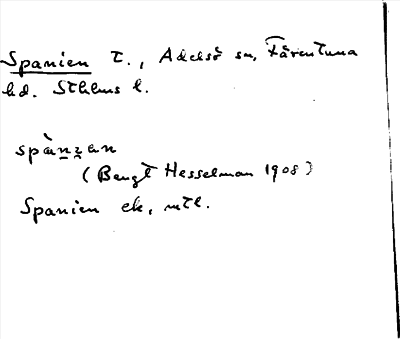 Spanien t., Adelsö sn, Färentuna
hd. Sthlms l.
spànzan
(Bengt Hesselman 1908)
Spanien ek, mtl.